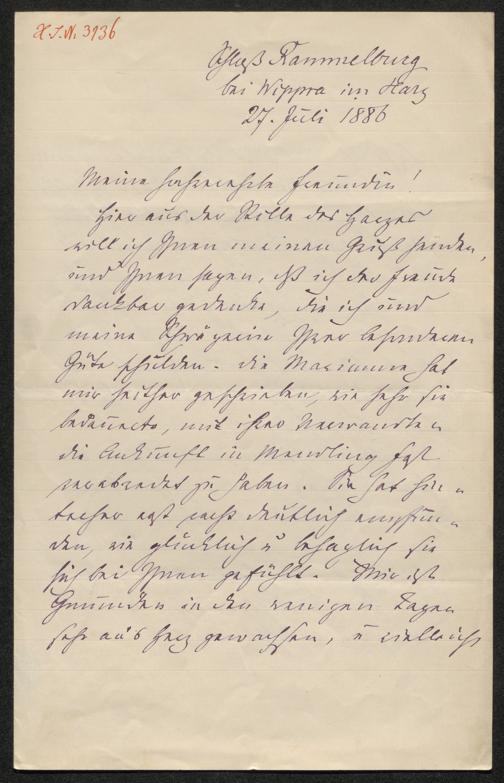 H.I.N. 3936
Schloß Rammelburg
bei Wippra im Harz
27. Juli 1886
Meine hochverehrte Freundin!
Hier aus der Stille des Harzes
will ich Ihnen meinen Gruß senden,
und Ihnen sagen, daß ich der Freude
dankbar gedenke, die ich und
meine Schwägerin Ihrer besonderen
Güte schulden. Die Marianne hat
mir seither geschrieben, wie sehr sie
bedauerte, mit ihren Verwandten
die Ankunft in Mendling fest
verabredet zu haben. Sie hat hin-
terher erst recht deutlich empfun-
den, wie glücklich u behaglich sie
sich bei Ihnen gefühlt. Mir ist
Gmunden in den wenigen Tagen
sehr an's Herz gewachsen, u vielleicht